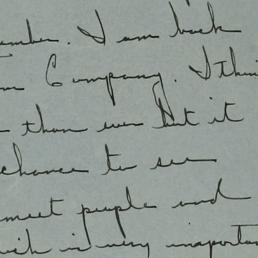 ember. I am back
m Company. I thin
than ever but it
chance to see
meet people and
ich is very importa